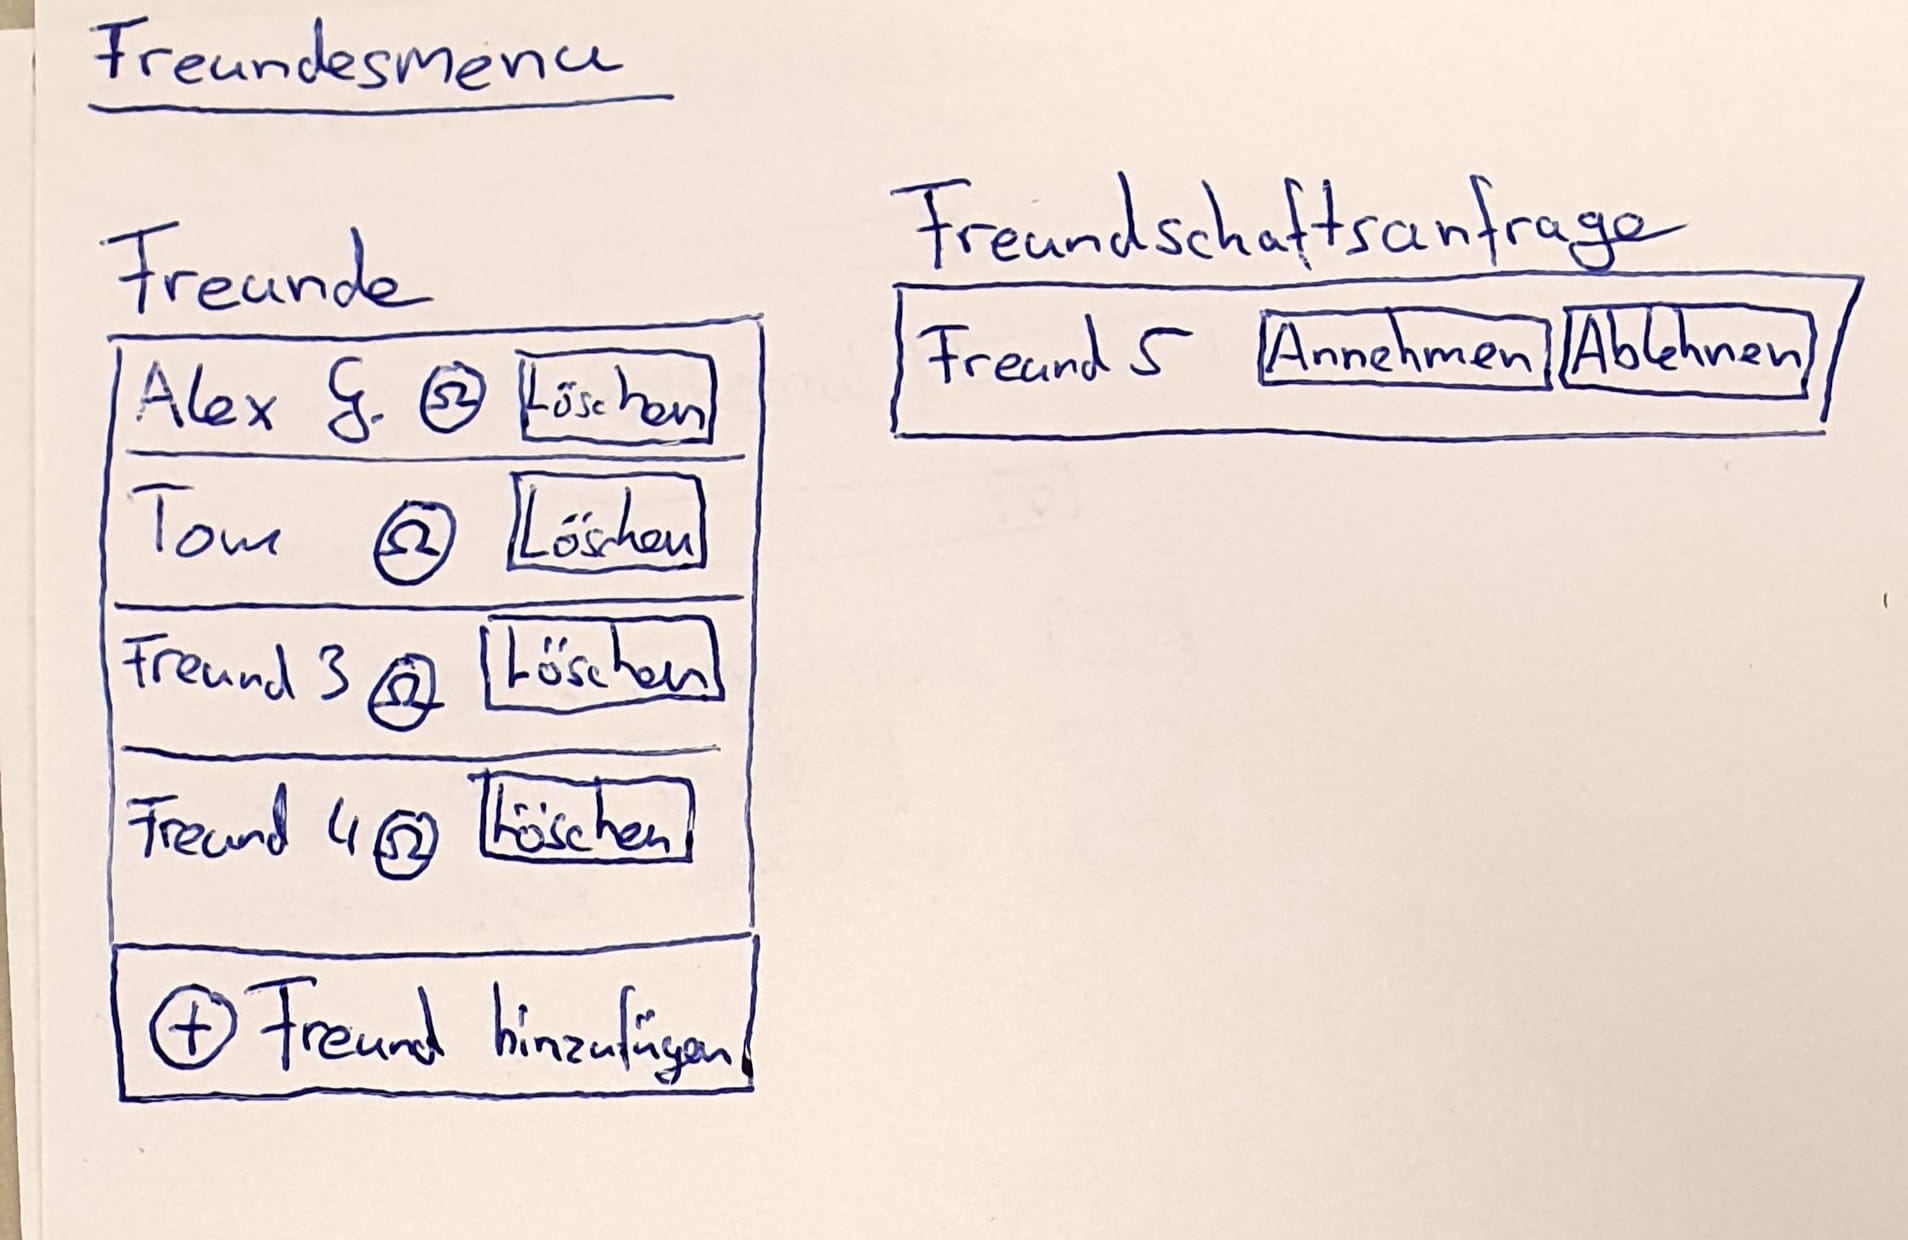 Freundesmenu
Freunde
Alex G. Löschen
Tom Löschen
Freund 3 Löschen
Freund 4 Löschen
+ Freund hinzufügen
Freundschaftsanfrage
Freund 5 Annehmen Ablehnen